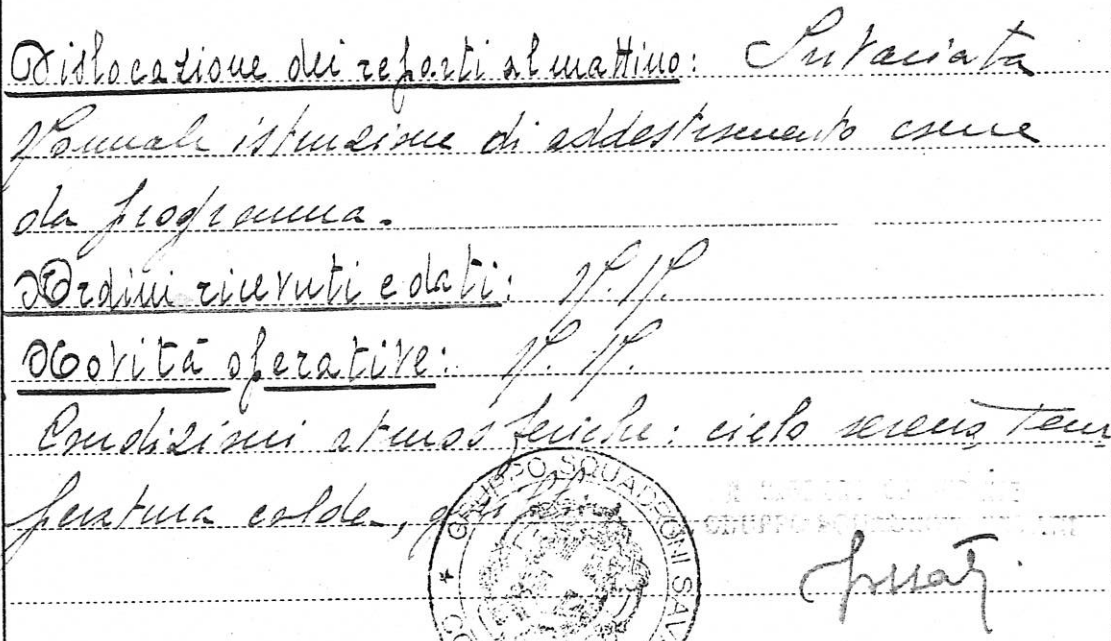 Dislocazione dei reparti al mattino: Invariata
Normale istruzione di addestramento come
da programma.
Ordini ricevuti e dati: N.N.
Novità operative: N.N.
Condizioni atmosferiche: cielo sereno, tem
peratura calda,
GRUPPO SQUADRONI SAV